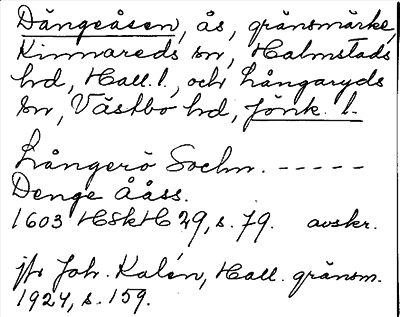 Dängeåsen, ås, gränsmärke,
Kinnareds sn, Halmstads
hd, Hall. l., och Långaryds
sn, Västbo hd, Jönk. l.
Långerö Sochn. - - - - -
Denge Ååss.
1603 HSkHC 29, s. 79. avskr.
jfr Joh. Kalén, Hall. gränsm.
1924, s. 159.